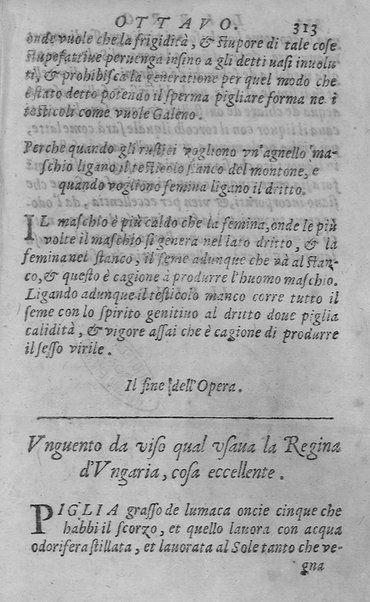 OTTAVO. 313
onde vuole che la frigidità, & stupore di tale cose
stupefattiue peruenga insino a gli detti uasi inuolu
ti, & prohibisca la generatione per quel modo che
è stato detto potendo il sperma pigliare forma ne i
testicoli come vuole Galeno.
Perche quando gli rustici vogliono vn'agnello ma-
schio ligano il testicolo stanco del montone, e
quando vogliono femina ligano il dritto.
IL maschio è più caldo che la femina, onde le più
volte il maschio si genera nel lato dritto, & la
femina nel stanco, il seme adunque che và al stan-
co, & questo è cagione à produrre l'huomo maschio.
Ligando adunque il testicolo manco corre tutto il
seme con lo spirito genitiuo al dritto doue piglia
calidità, & vigore assai che è cagione di produrre
il sesso virile.
Il fine dell'Opera.
Vnguento da viso qual vsaua la Regina
d'Vngaria, cosa eccellente.
PIGLIA grasso de lumaca oncie cinque che
habbi il scorzo, et quello lauora con acqua
odorifera stillata, et lauorata al Sole tanto che ve-
gna